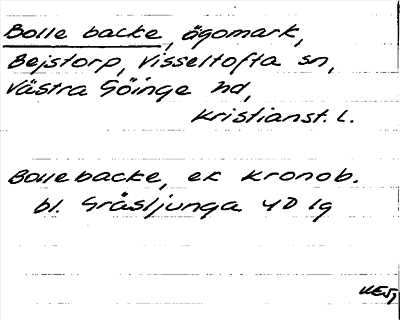 Bolle backe, ägomark,
Bejstorp, Visseltofta sn,
Västra Göinge hd,
Kristianst. l.
Bollebacke, ek Kronob.
bl. Gråsljunga 4D 1g